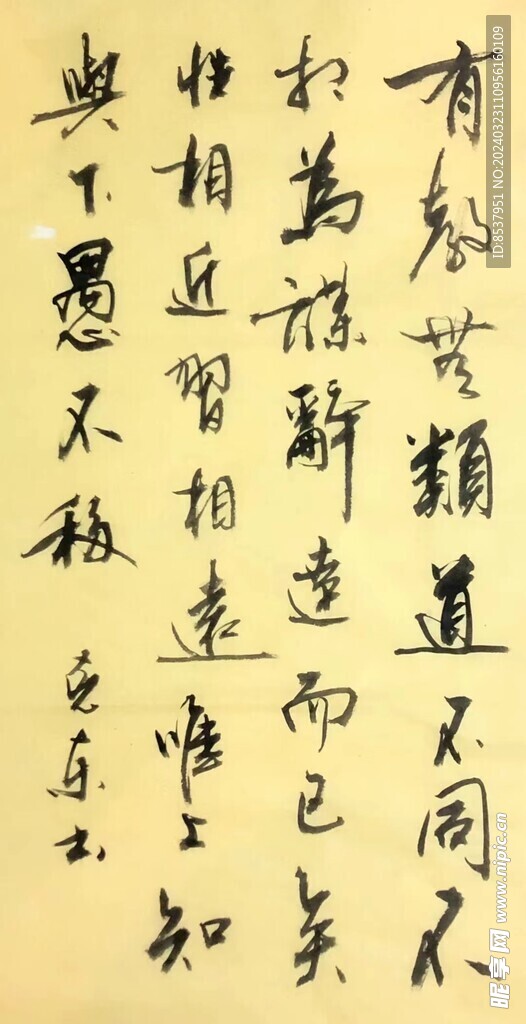 有教無類道不同不
相為謀辭達而已矣
性相近習相遠唯上知
與下愚不移
克東书
ID:8537951 NO:20240323110956160109
昵享网 www.nipic.cn